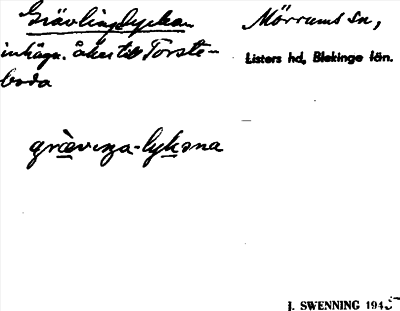 Grävlingslyckan
Mörrums sn,
inhägn. åker till Torste-
boda
Listers hd, Blekinge län.
græ̀vıŋa-lykəna
J. SWENNING 1945